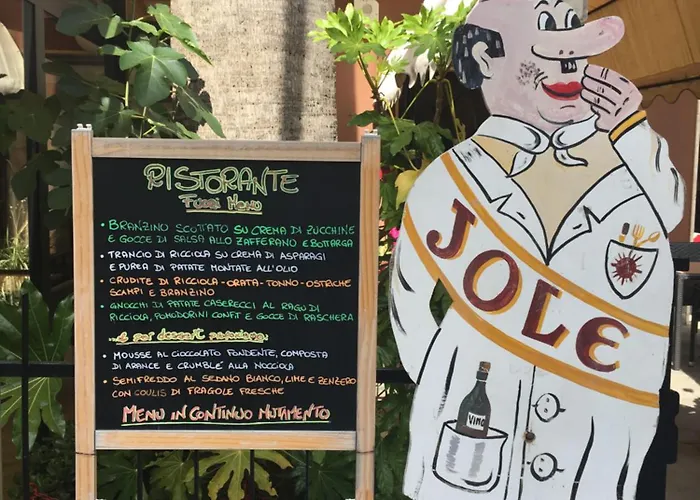 RISTORANTE
FUORI MENU
• BRANZINO SCOTTATO SU CREMA DI ZUCCHINE
E GOCCE DI SALSA ALLO ZAFFERANO E BOTTARGA
• TRANCIO DI RICCIOLA SU CREMA DI ASPARAGI
E PUREA DI PATATE MONTATE ALL'OLIO
• CRUDITE DI RICCIOLA - ORATA - TONNO - OSTRICHE
SCAMPI E BRANZINO
• GNOCCHI DI PATATE CASERECCI AL RAGU DI
RICCIOLA, POMODORINI CONFIT E GOCCE DI RASCHERA
...e per dessert
• MOUSSE AL CIOCCOLATO FONDENTE, COMPOSTA
DI ARANCE E CRUMBLE' ALLA NOCCIOLA
• SEMIFREDDO AL SEDANO BIANCO, LIME E ZENZERO
CON COULIS DI FRAGOLE FRESCHE
MENU IN CONTINUO MUTAMENTO
JOLE
VINO